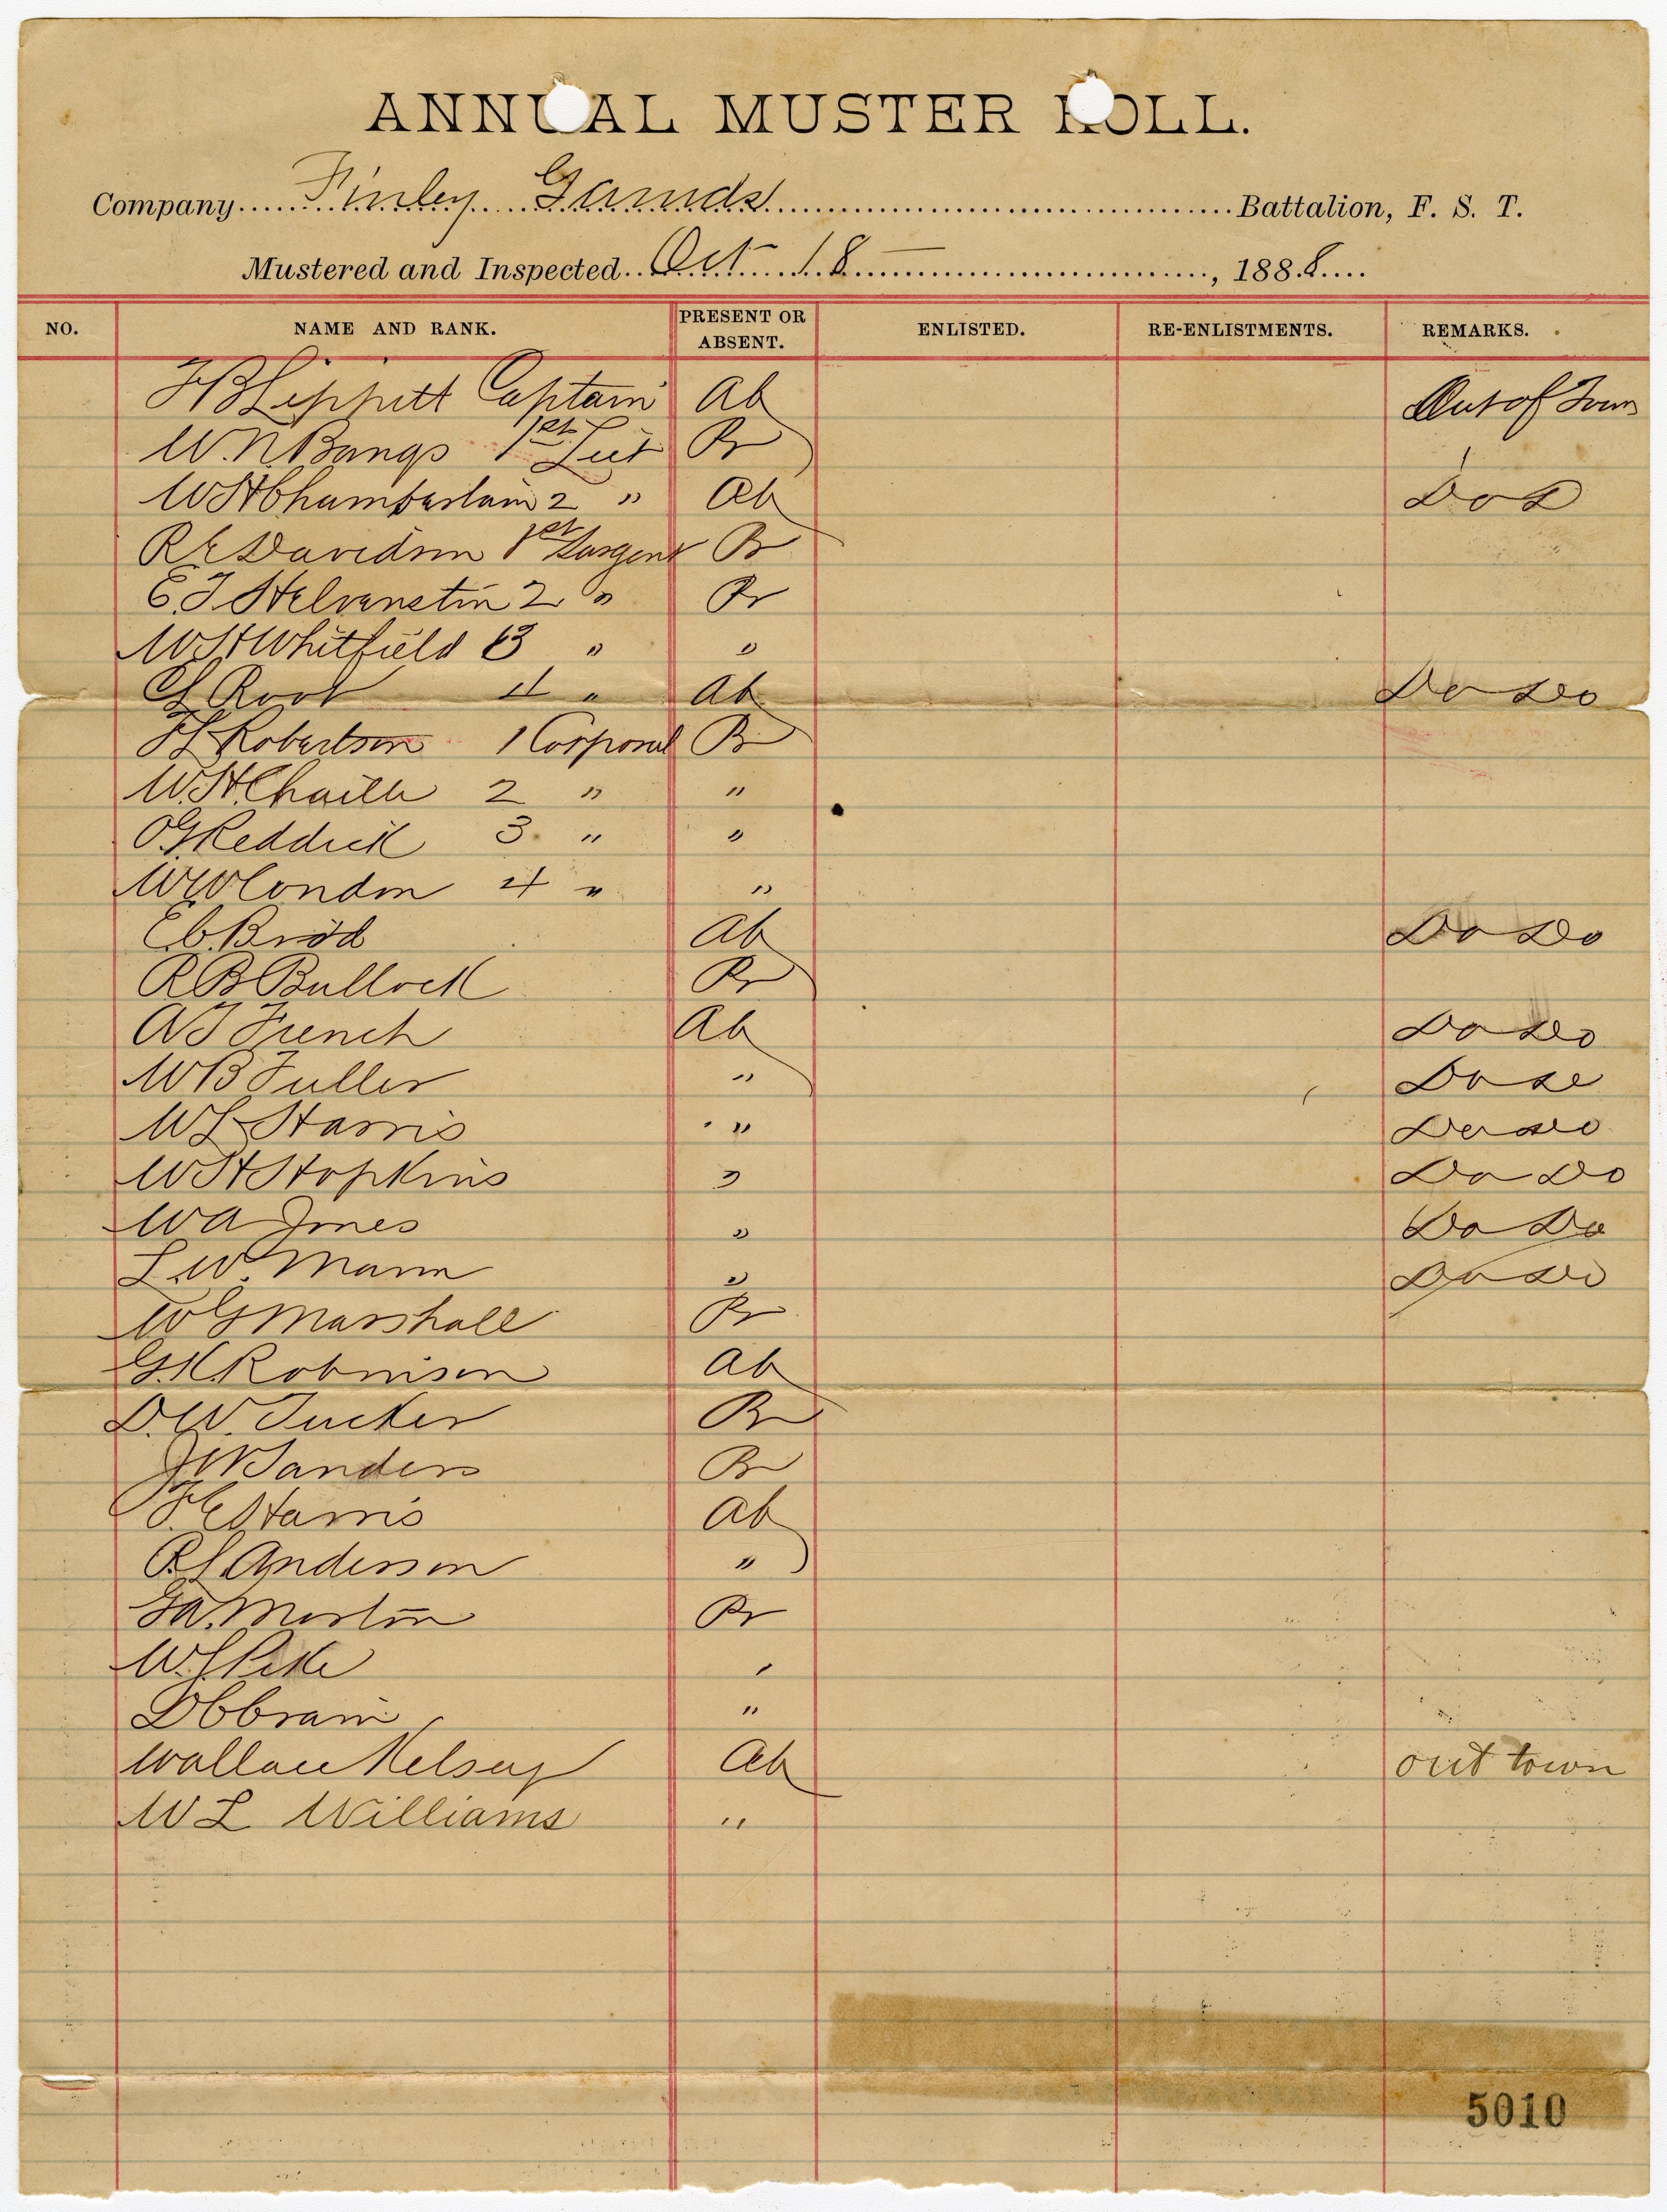 ANNUAL MUSTER ROLL.
Company Finley Gaurds Battalion, F. S. T.
Mustered and Inspected Oct 18 , 1888
NO. NAME AND RANK. PRESENT OR ABSENT. ENLISTED. RE-ENLISTMENTS. REMARKS.
FB Lippitt Captain Ab Out of Town
W.N. Bangs 1st Liet Pr
WH Chamberlain 2 " Ab Do D
RE Davidson 1st Sargent Pr
E.T. Helvenstin 2 " Pr
WH Whitfield 3 " "
CL Root 4 " Ab Do Do
Robertson 1 Corporal Pr
W.H. Chaille 2 " "
O.G. Reddick 3 " "
WW Condon 4 " "
E.C. Ab Do Do
RB Bullock Pr
AT French Ab Do Do
WB Fuller " Do Do
WL Harris " Do Do
WH Hopkins " Do Do
WA Jones " Do Do
L.W. Mann " Do Do
WG Marshall Pr
G.K. Robinson Ab
D.W. Tucker Pr
JW Sanders Pr
F.C. Harris Ab
R.L. Anderson "
G.A. Martin Pr
W.L. Pike "
"
Wallace Kelsey Ab out town
WL Williams "
5010